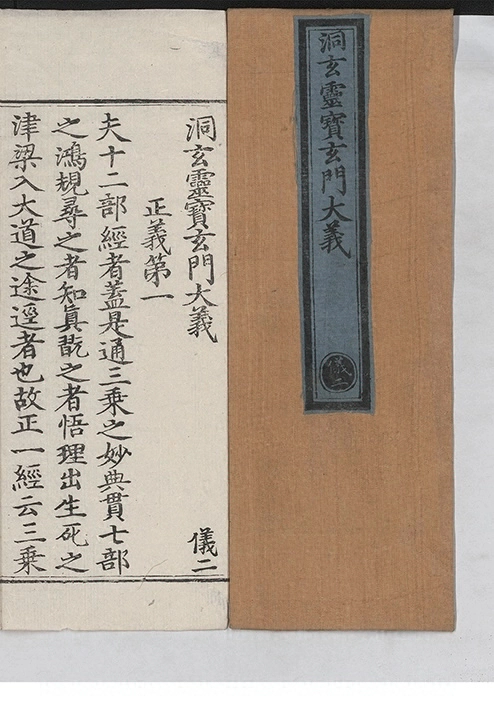 洞玄靈寶玄門大義
儀二
洞玄靈寶玄門大義 儀二
正義第一
夫十二部經者蓋是通三乘之妙典貫七部
之鴻規尋之者知真翫之者悟理出生死之
津梁入大道之途逕者也故正一經云三乘